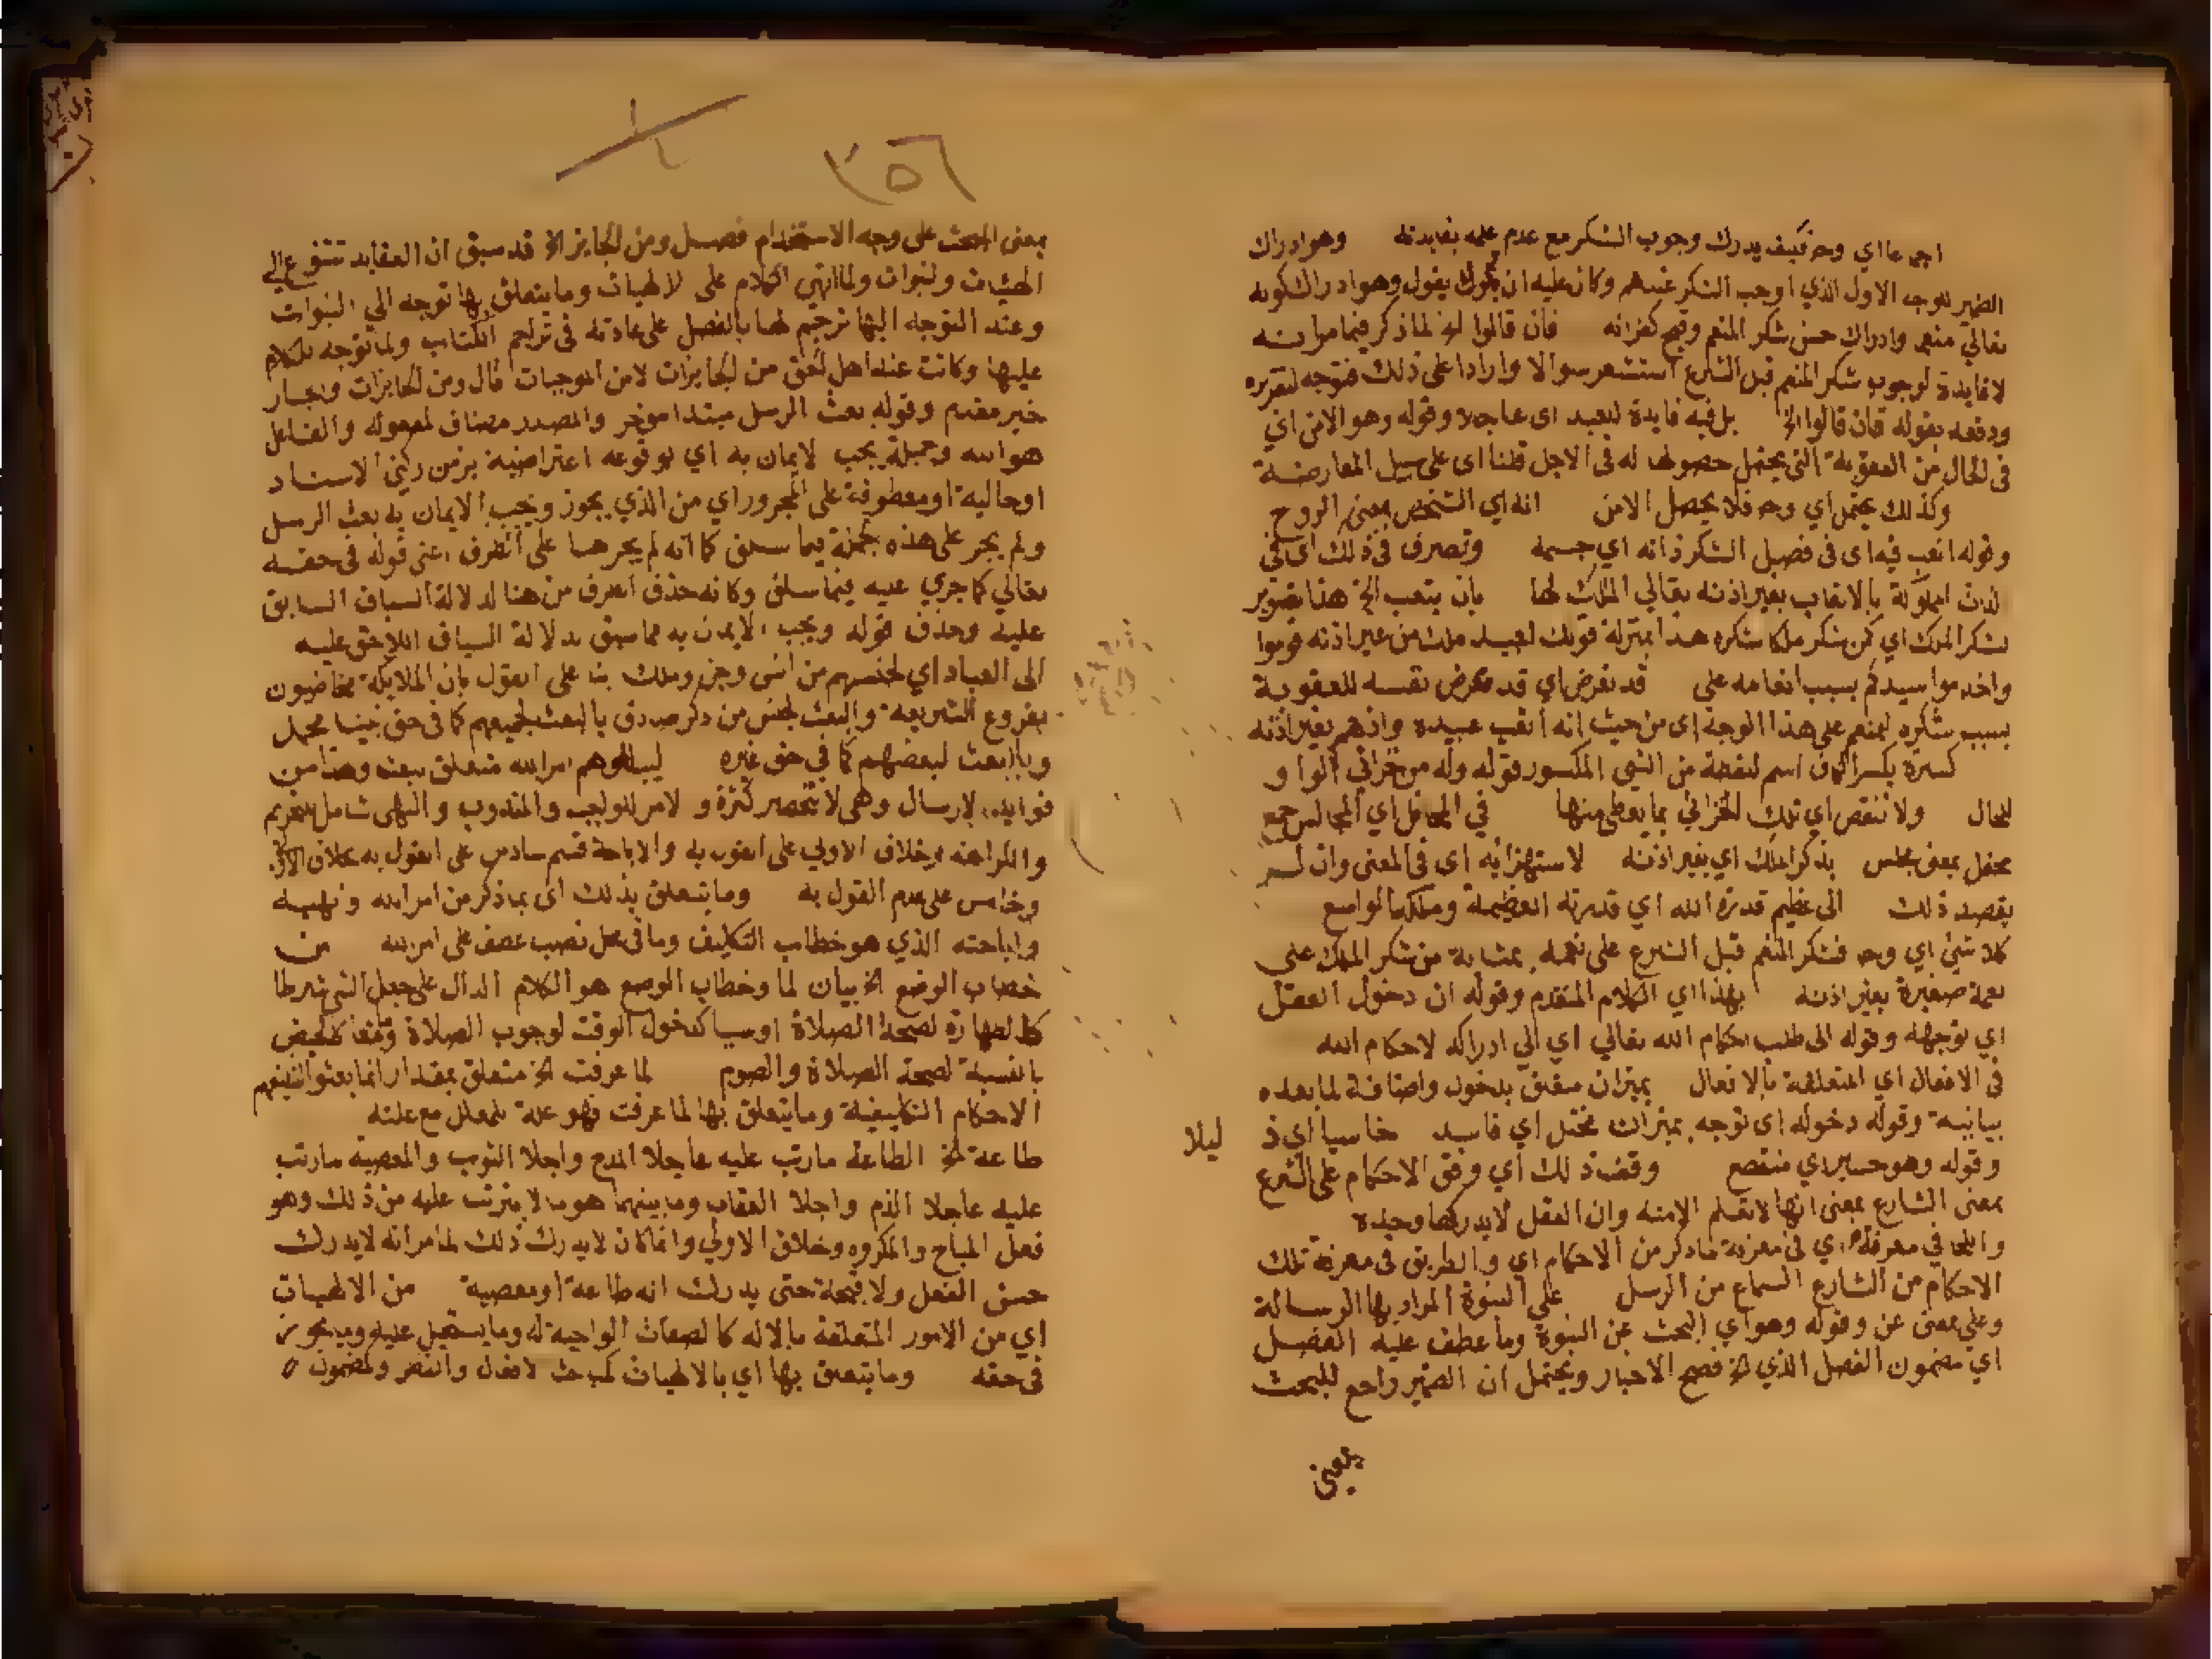 اجماعا اي وح فكيف يدرك وجوب الشكر مع عدم علمه بفايدته وهو ادراك
الضمير للوجه الاول الذي اوجب الشكر عندهم وكان عليه ان يقول وهو ادراك كونه
تعالي منعم وادراك حسن شكر المنعم وقبح كفرانه فان قالوا الخ لما ذكر فيما مر انه
لا فايدة لوجوب شكر المنعم قبل الشرع استشعر سوالا وارادا على ذلك فتوجه لتقريره
ودفعه بقوله فان قالوا الخ بل فيه فايدة للعبد اى عاجلا وقوله وهو الامن اي
فى الحال من العقوبة التى يحتمل حصولها له فى الاجل قلنا اى على سبيل المعارضة
وكذلك يحتمل اي وح فلا يحصل الامن انه اي الشخص بمعنى الروح
وقوله اتعب فيه اى فى فصيل الشكر ذاته اي جسمه وتصرف فى ذلك اى فى
الذات المملوكة بالاتعاب بغير اذنه تعالي المالك لها بان يتعب الخ هذا تصوير
بشكر الملك اي كمن شكر ملكا شكره هذا بمنزلة قولك لعبيد ملك من غير اذنه قوموا
واخدموا سيدكم بسبب انعامه على قد تعرض اي قد عرض نفسه للعقوبة
بسبب شكره المنعم على هذا الوجه اى من حيث انه اتعب عبيده واذهم بغير اذنه
كسرة بكسر الكاف اسم لقطعة من الشي المكسور قوله وله من خزائن الواو
للحال ولا تنقص اي تلك الخزائن بما يعطى منها في المحافل اي المجالس جمع
محفل بمعنى مجلس بذكر الملك اي بغير اذنه لاستهزائه اى فى المعنى وان لم
يقصد ذلك الى عظيم قدرة الله اي قدرته العظيمة وملكه الواسع
كلا شئ اي وح فشكر المنعم قبل الشرع على نعمه بمثابة من شكر الملك على
نعمة صغيرة بغير اذنه بهذا اي الكلام المتقدم وقوله ان دخول العقل
اي توجهه وقوله الى طلب احكام الله تعالي اي الي ادراكه لاحكام الله
فى الافعال اي المتعلقة بالافعال بميزان متعلق بدخول واضافة لما بعده
بيانية وقوله دخوله اى توجه بميزان مختل اي فاسد خاسيا اي ذ
ليلا
وقوله وهو حسير اي منقطع وقف ذلك اي وقف الاحكام على الشرع
بمعنى الشارع بمعنى انها لا تعلم الا منه وان العقل لا يدركها وحده
في معرفة اي فى معرفة ماذكر من الاحكام اي والطريق فى معرفة تلك
الاحكام من الشارع السماع من الرسل على النبوة المراد بها الرسالة
وعلى بمعنى عن وقوله وهو اي البحث عن النبوة وما عطف عليه الفصل
اي مضمون الفصل الذي الخ فصح الاخبار ويحتمل ان الضمير راجع للبحث
بمعنى
٣٥٦
بمعنى المبحث على وجه الاستخدام فصل ومن الجايز الخ قد سبق ان العقايد تتنوع الي
الهيات ونبوات ولما انتهى الكلام على الالهيات وما يتعلق بها توجه الي النبوات
وعند التوجه اليها ترجم لها بالفصل على عادته فى تراجم الكتاب ولما توجه للكلام
عليها وكانت عند اهل الحق من الجايزات لا من الموجبات قال ومن الجايزات
خبر مقدم وقوله بعث الرسل مبتدا موخر والمصدر مضاف لمفعوله والفاعل
هو الله وجملة يجب الايمان به اي بوقوعه اعتراضية بين ركنى الاسناد
او حالية او معطوفة على المجرور اي من الذي يجوز ويجب الايمان به بعث الرسل
ولم يجر على هذه الجملة فيما سلف كما انه لم يجر هنا على الظرف اعنى قوله فى حقه
تعالي كما جري عليه فيما سلف وكانه حذف الظرف من هنا لدلالة السياق السابق
عليه وحذف قوله ويجب الايمان به مما سبق بدلالة السياق اللاحق عليه
الى العباد اي لجنسهم من انس وجن وملك بناء على القول بان الملايكة مخاطبون
بفروع الشريعة والبعث لجنس من ذكر صادق بالبعث لجميعهم كما فى حق نبينا محمد
وبالبعث لبعضهم كما في حق غيره ليبلغوهم امر الله متعلق ببعث وهذا من
فوايد الارسال وهى لا تنحصر كثرة والامر للوجوب والمندوب والنهى شامل للتحريم
والكراهة وخلاف الاولي على القول به والاباحة قسم سادس على القول بخلاف الاولى
وخامس على عدم القول به وما يتعلق بذلك اى بما ذكر من امر الله ونهيه
واباحته الذي هو خطاب التكليف وما فى محل نصب عطف على امر الله من
خطاب الوضع الخ بيان لما وخطاب الوضع هو الكلام الدال على جعل الشى شرطا
كالطهارة لصحة الصلاة او سببا كدخول الوقت لوجوب الصلاة ومانعا كالحيض
بالنسبة لصحة الصلاة والصوم لما عرفت الخ متعلق بمقدر اي انما بعثوا لتبليغهم
الاحكام التكليفية وما يتعلق بها لما عرفت فهو علة للمعلل مع علته
طاعة الخ الطاعة مارتب عليه عاجلا المدح واجلا الثواب والمعصية مارتب
عليه عاجلا الذم واجلا العقاب وما بينهما هو ما لا يترتب عليه من ذلك وهو
فعل المباح والمكروه وخلاف الاولي وانما كان لا يدرك ذلك لما مر انه لا يدرك
حسن الفعل ولا قبحه حتى يدرك انه طاعة او معصية من الالهيات
اي من الامور المتعلقة بالاله كالصفات الواجبة له وما يستحيل عليه وما يجوز
فى حقه وما يتعلق بها اي بالالهيات كمبحث الافعال